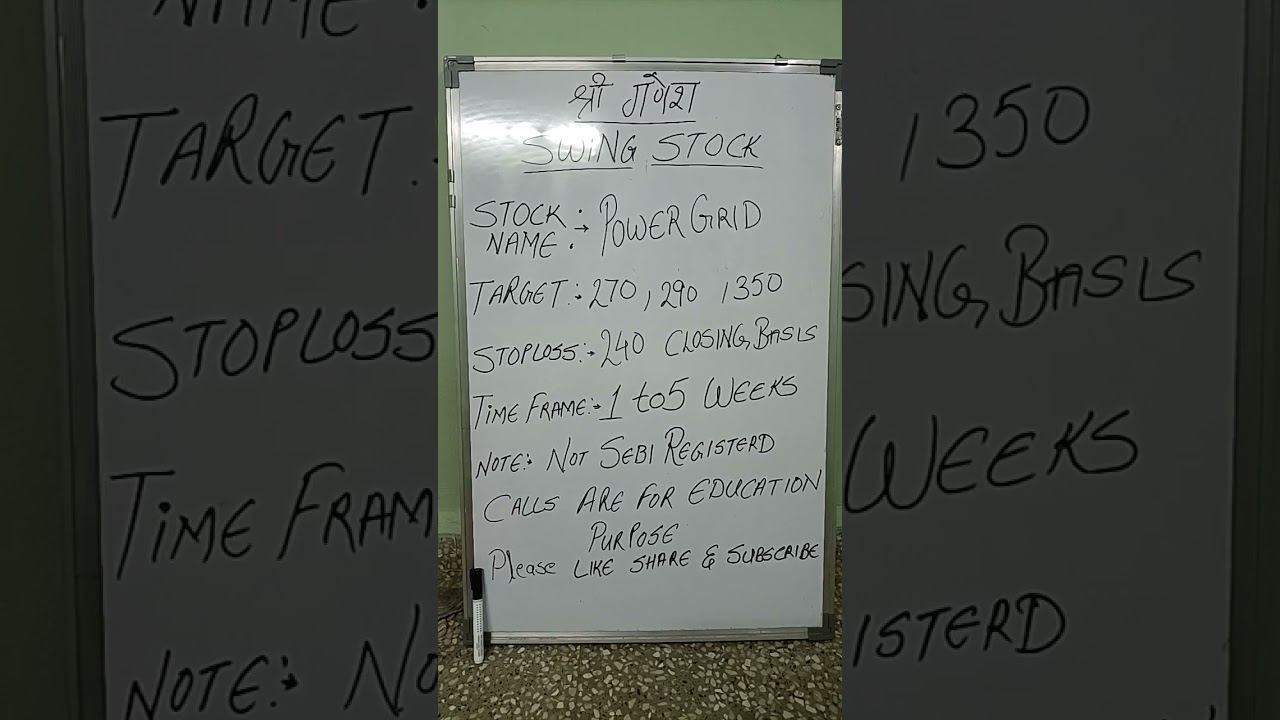 श्री गणेश
SWING STOCK
STOCK NAME :→ POWER GRID
TARGET:- 270, 290, 350
STOPLOSS:- 240 CLOSING BASIS
TIME FRAME:- 1 to 5 WEEKS
NOTE:- NOT SEBI REGISTERD
CALLS ARE FOR EDUCATION
PURPOSE
Please LIKE SHARE & SUBSCRIBE